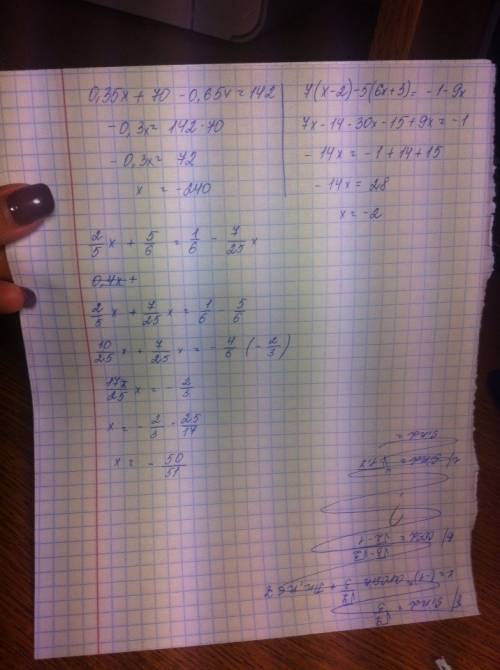 0,35x + 70 - 0,65x = 142
-0,3x = 142-70
-0,3x = 72
x = -240
7(x-2)-5(6x+3) = -1-9x
7x-14-30x-15+9x = -1
-14x = -1+14+15
-14x = 28
x = -2
2/5 x + 5/6 = 1/6 - 7/25 x
0,4x +
2/5 x + 7/25 x = 1/6 - 5/6
10/25 x + 7/25 x = - 4/6 (- 2/3)
17x/25 x = - 2/3
x = - 2/3 · 25/17
x = - 50/51